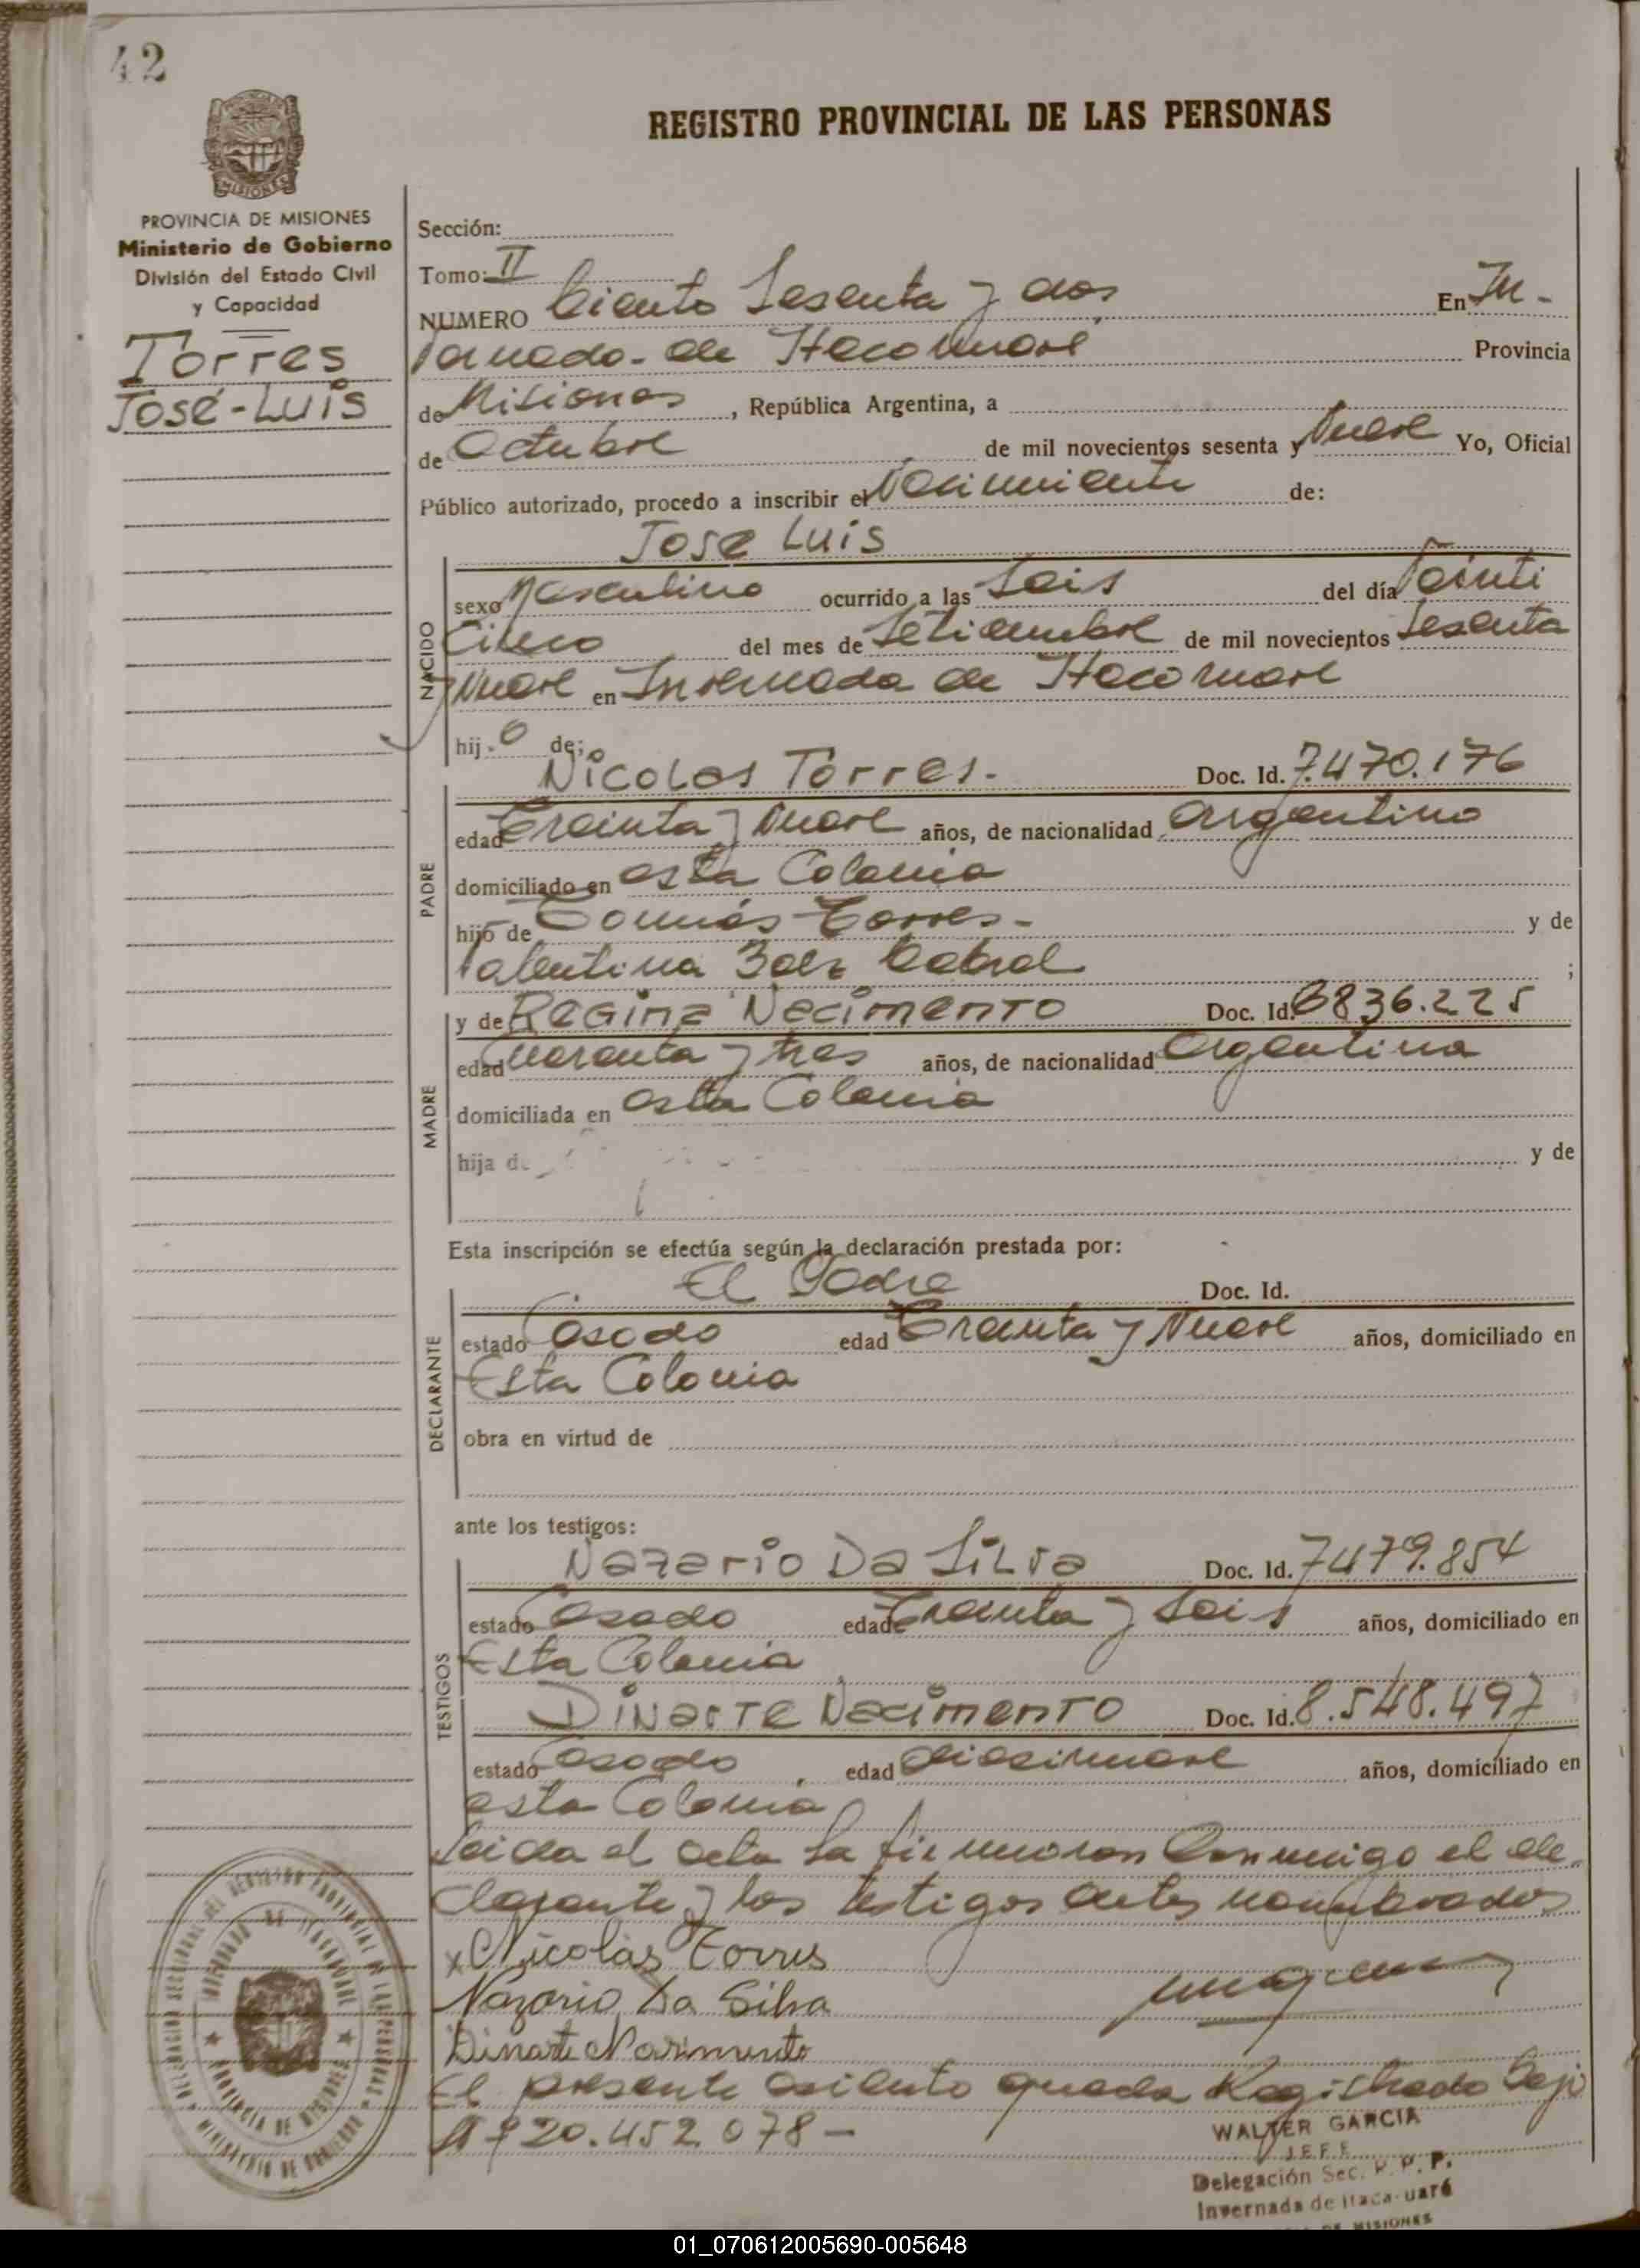 42
REGISTRO PROVINCIAL DE LAS PERSONAS
MISIONES
PROVINCIA DE MISIONES
Ministerio de Gobierno
División del Estado Civil
y Capacidad
Torres
José-Luis
Sección:
Tomo: II
NUMERO Ciento Sesenta y dos En In-
vernada de Itacaruaré Provincia
de Misiones, República Argentina, a
de Octubre de mil novecientos sesenta y Nueve Yo, Oficial
Público autorizado, procedo a inscribir el Nacimiento de:
Jose Luis
NACIDO
sexo Masculino ocurrido a las Seis del día Veinti
Cinco del mes de Setiembre de mil novecientos Sesenta
y Nueve en Invernada de Itacaruare
hij.o de:
Nicolas Torres- Doc. Id. 7.470.176
PADRE
edad Treinta y Nueve años, de nacionalidad Argentino
domiciliado en esta Colonia
hijo de Tomás Torres- y de
Valentina Baez Cabral ;
MADRE
y de Regina Nacimento Doc. Id. 6836.225
edad Cuarenta y tres años, de nacionalidad Argentina
domiciliada en esta Colonia
hija de y de
Esta inscripción se efectúa según la declaración prestada por:
El Padre Doc. Id.
DECLARANTE
estado Casado edad Treinta y Nueve años, domiciliado en
Esta Colonia
obra en virtud de
ante los testigos:
Nazario Da Silva Doc. Id. 7479.854
TESTIGOS
estado Casado edad Treinta y Seis años, domiciliado en
Esta Colonia
Dinarte Nacimento Doc. Id. 8.548.497
estado Casado edad diecinueve años, domiciliado en
esta Colonia
Leida el acta la firmaran Conmigo el de-
clarante y los testigos antes nombrados
x Nicolás Torres
Nazario Da Silva
Dinarte Nacimento
El presente asiento queda Registrado Bajo
Nº 20.452.078-
WALTER GARCIA
JEFE
Delegación Sec. R. P. P.
Invernada de Itacaruaré
MISIONES
01_070612005690-005648